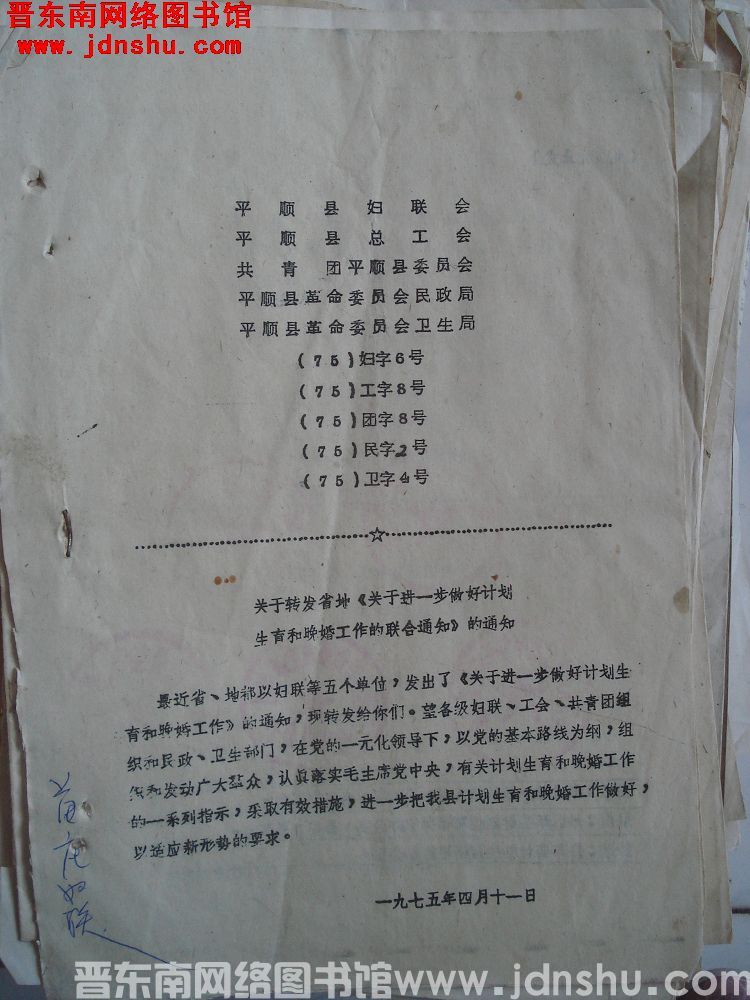 晋东南网络图书馆
www.jdnshu.com
平顺县妇联会
平顺县总工会
共青团平顺县委员会
平顺县革命委员会民政局
平顺县革命委员会卫生局
(75)妇字6号
(75)工字8号
(75)团字8号
(75)民字2号
(75)卫字4号
关于转发省地《关于进一步做好计划
生育和晚婚工作的联合通知》的通知
最近省、地都以妇联等五个单位,发出了《关于进一步做好计划生
育和晚婚工作》的通知,现转发给你们。望各级妇联、工会、共青团组
织和民政、卫生部门,在党的一元化领导下,以党的基本路线为纲,组
织和发动广大群众,认真落实毛主席党中央,有关计划生育和晚婚工作
的一系列指示,采取有效措施,进一步把我县计划生育和晚婚工作做好,
以适应新形势的要求。
一九七五年四月十一日
妇联
晋东南网络图书馆www.jdnshu.com